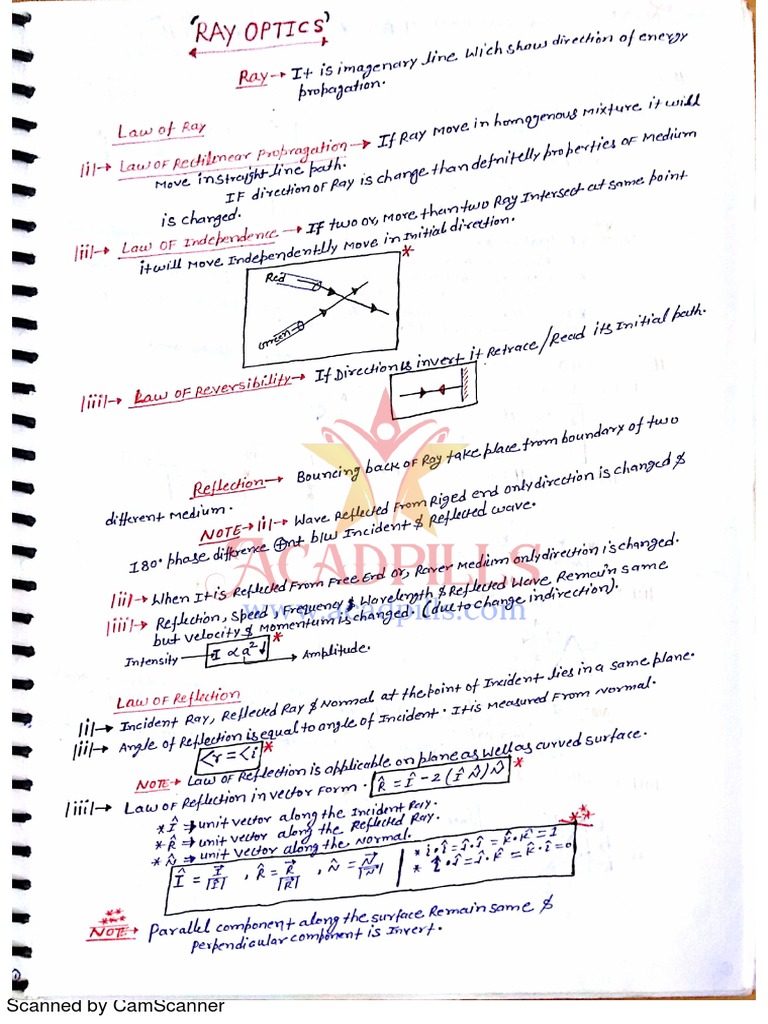 'RAY OPTICS'
Ray → It is imagenary line Wich show direction of energy
propagation.
Law of Ray
|i|→ Law of Rectilinear Propragation → If Ray Move in homogenous Mixture it will
Move in straight line path.
IF direction of Ray is change than definitelly properties of Medium
is changed.
|ii|→ Law OF Independence → If two or, More than two Ray Intersect at same point
it will Move Independently Move in Initial direction.
*
Red
Green
|iii|→ Law OF Reversibility → If Direction is invert it Retrace/Read its Initial path.
Reflection → Bouncing back of Ray take place from boundary of two
different Medium.
NOTE → |i|→ Wave Reflected From Riged end only direction is changed &
180° phase difference nt b/w Incident & Reflected wave.
ACADPILLS
|ii|→ When It is Reflected From Free End or, Rarer Medium only direction is changed.
www.acadpills.com
|iii|→ Reflection, Speed, Frequency & Wavelength & Reflected Wave Remain same
but velocity & Momentum is changed. (due to change in direction).
Intensity → I ∝ a² ↓ * → Amplitude.
Law of Reflection
|i|→ Incident Ray, Reflected Ray & Normal at the point of Incident lies in a same plane.
|ii|→ Angle of Reflection is equal to angle of Incident. It is Measured From Normal.
<r = <i *
NOTE → Law of Reflection is applicable on plane as well as curved surface.
|iii|→ Law of Reflection in vector Form. R̂ = Î - 2 (Î N̂) N̂ *
* Î → unit vector along the Incident Ray.
* R̂ → unit vector along the Reflected Ray.
* N̂ → unit vector along the Normal.
**
Î = I⃗/|I⃗| , R̂ = R⃗/|R⃗| , N̂ = N⃗/|N⃗| | * î·î = ĵ·ĵ = k̂·k̂ = 1
* î·ĵ = ĵ·k̂ = k̂·î = 0
NOTE → Parallel component along the surface Remain same &
perpendicular component is Invert.
Scanned by CamScanner